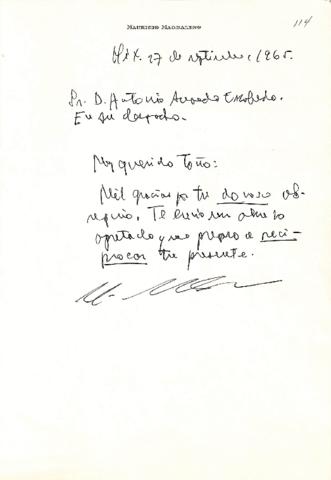 Mauricio Magdaleno
114
Méx. 27 de septiembre, 1965.
Sr. D. Antonio Acevedo Escobedo.
En su despacho.
Muy querido Toño:
Mil gracias por tu
sequio. Te envío un abrazo
apretado y me preparo a reci-
procar tu presente.